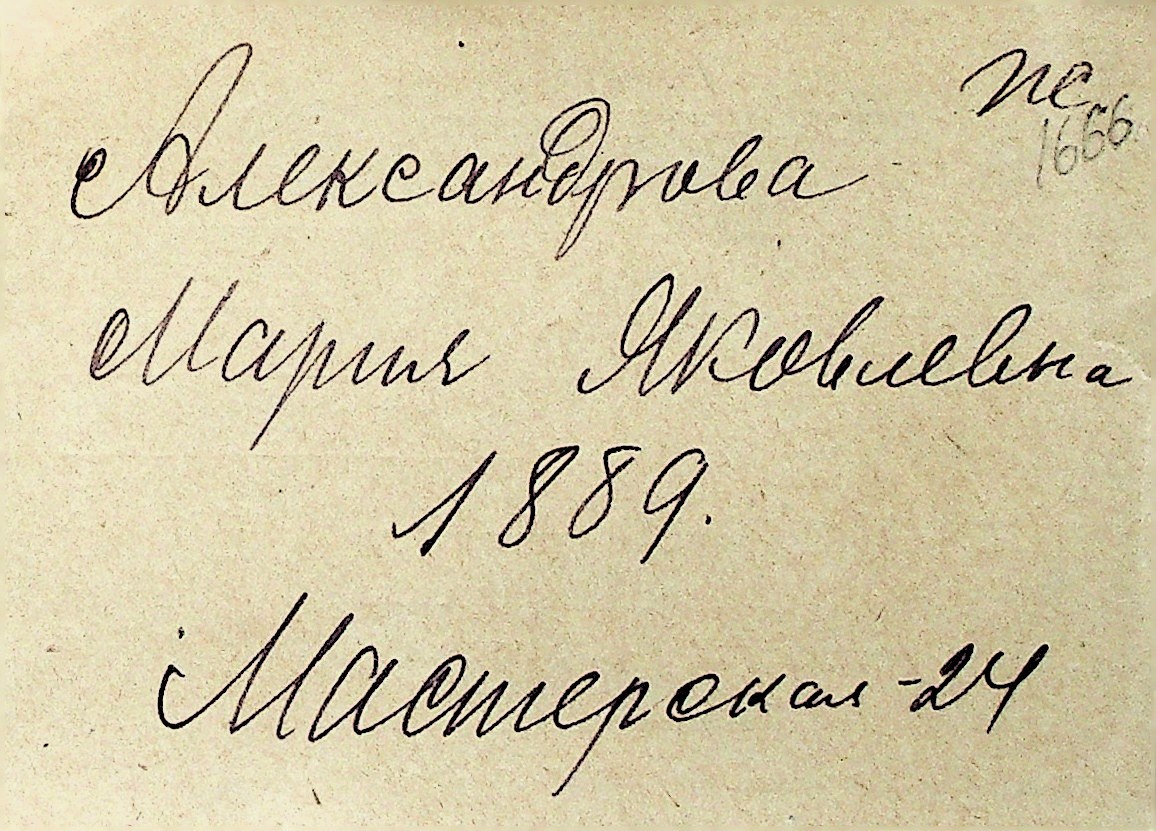 пс
1666
Александрова
Мария Яковлевна
1889.
Мастерская - 24